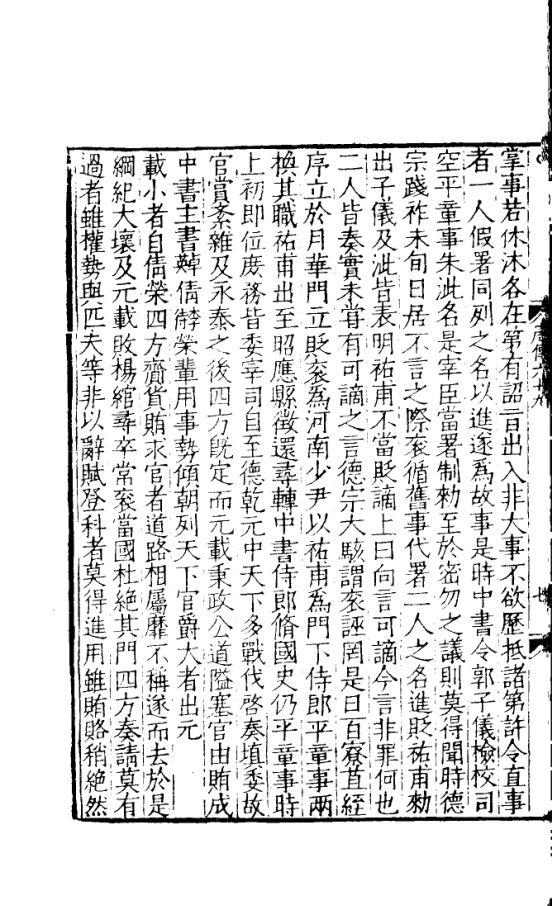 掌事若休沐各在第有詔旨出入非大事不欲歷抵諸第許令直事
者一人假署同列之名以進遂爲故事是時中書令郭子儀檢校司
空平章事朱泚名是宰臣當署制勑至於密勿之議則莫得聞時德
宗踐祚未旬日居不言之際衮循舊事代署二人之名進貶祐甫勑
出子儀及泚皆表明祐甫不當貶謫上曰向言可謫今言非罪何也
二人皆奏實未甞有可謫之言德宗大駭謂衮誣罔是日百寮苴絰
序立於月華門立貶衮爲河南少尹以祐甫爲門下侍郎平章事兩
換其職祐甫出至昭應縣徵還尋轉中書侍郎脩國史仍平章事時
上初即位庶務皆委宰司自至德乾元中天下多戰伐啓奏填委故
官賞紊雜及永泰之後四方旣定而元載秉政公道隘塞官由賄成
中書主書卓英倩李待榮輩用事勢傾朝列天下官爵大者出元
載小者自倩榮四方齎貨賄求官者道路相屬靡不稱遂而去於是
綱紀大壞及元載敗楊綰尋卒常衮當國杜絶其門四方奏請莫有
過者雖權勢與匹夫等非以辭賦登科者莫得進用雖賄賂稍絶然